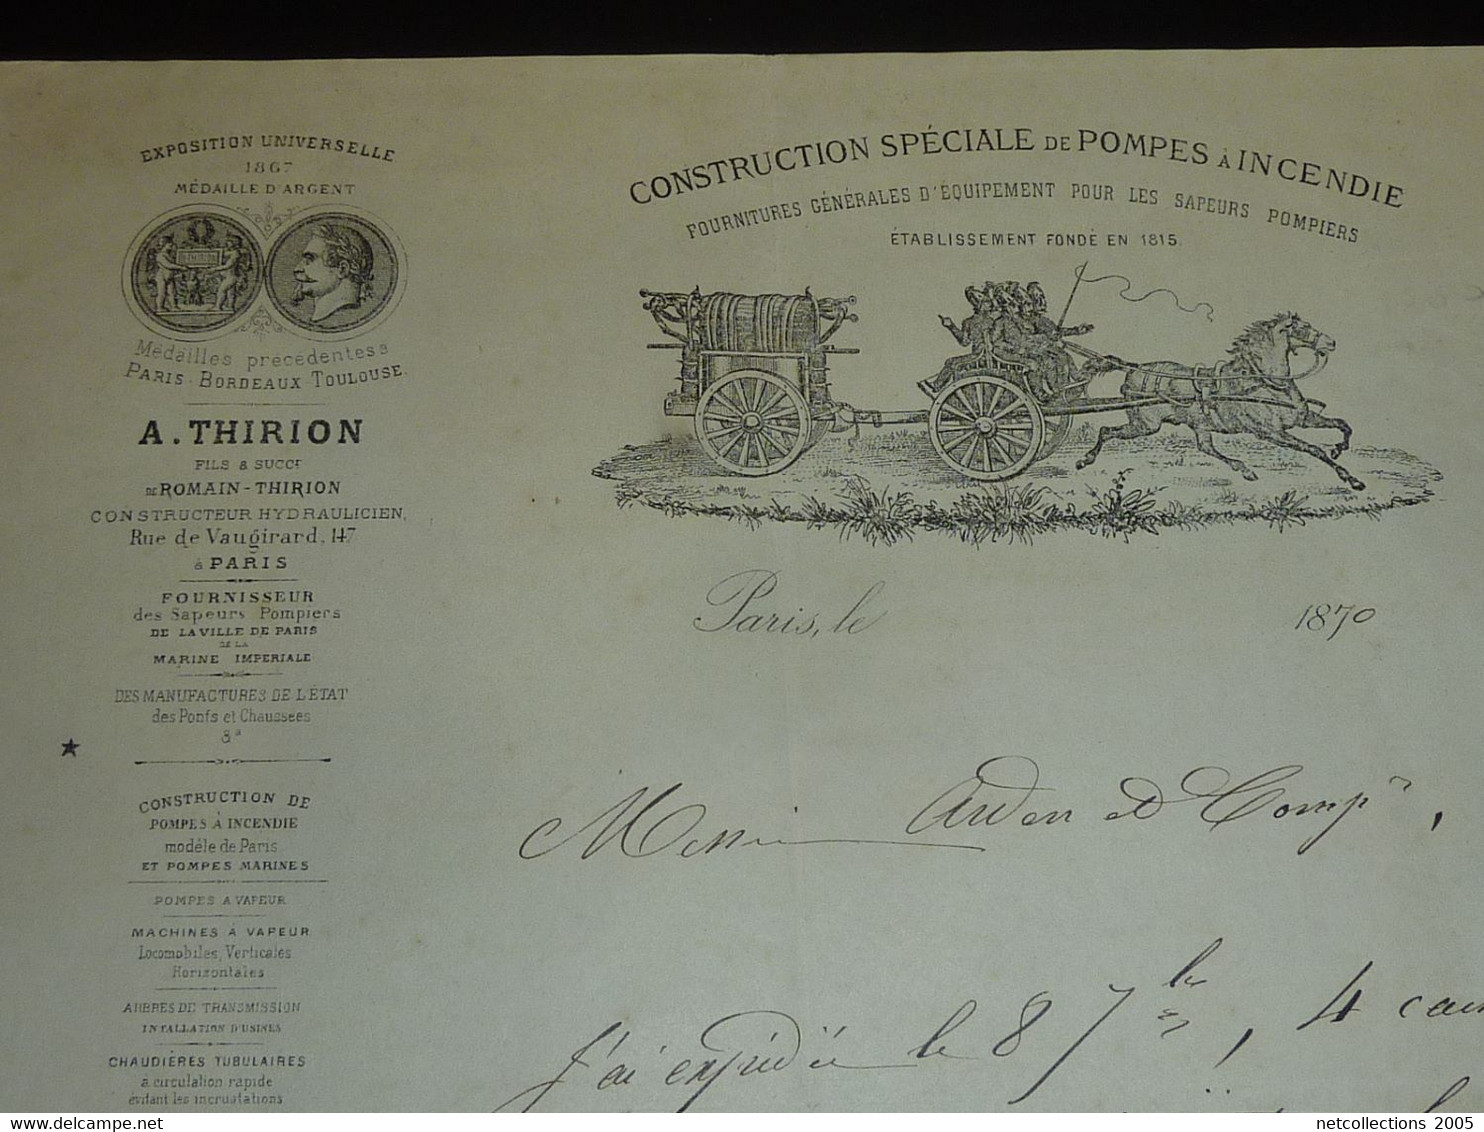 EXPOSITION UNIVERSELLE
1867
MÉDAILLE D'ARGENT
Médailles précédentess
PARIS - BORDEAUX - TOULOUSE.
A. THIRION
FILS & SUCCr
DE ROMAIN-THIRION
CONSTRUCTEUR HYDRAULICIEN,
Rue de Vaugirard, 147
à PARIS
FOURNISSEUR
des Sapeurs Pompiers
DE LA VILLE DE PARIS
DE LA
MARINE IMPERIALE
DES MANUFACTURES DE L'ÉTAT
des Ponts et Chaussées
&a
CONSTRUCTION DE
POMPES À INCENDIE
modéle de Paris
ET POMPES MARINES
POMPES A VAPEUR
MACHINES À VAPEUR
Locomobiles, Verticales
Horizontales
ARBRES DE TRANSMISSION
INTALLATION D'USINES
CHAUDIÈRES TUBULAIRES
à circulation rapide
évitant les incrustations
CONSTRUCTION SPÉCIALE DE POMPES À INCENDIE
FOURNITURES GÉNÉRALES D'ÉQUIPEMENT POUR LES SAPEURS POMPIERS
ÉTABLISSEMENT FONDÉ EN 1815.
Paris, le 1870
Messieurs et Comp
J'ai expédié le 8 7bre, 4
netcollections 2005